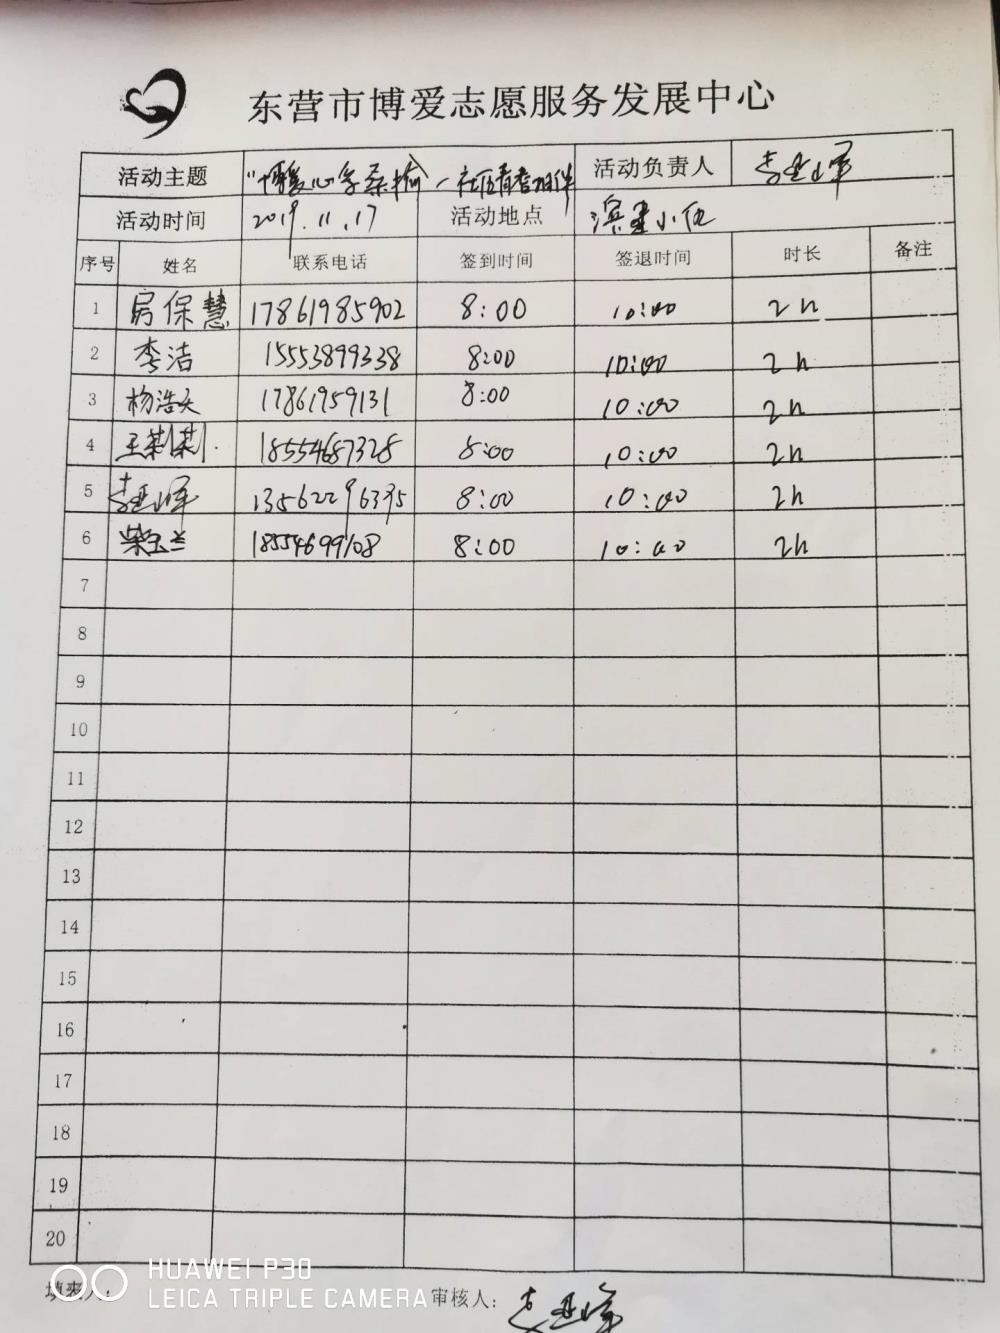 东营市博爱志愿服务发展中心
活动主题 活动负责人
活动时间 2019.11.17 活动地点 滨建小区
序号 姓名 联系电话 签到时间 签退时间 时长 备注
1 房保慧 17861985902 8:00 10:00 2h
2 李洁 15553899338 8:00 10:00 2h
3 杨浩天 17861959131 8:00 10:00 2h
4 王莉莉 18554687328 8:00 10:00 2h
5 13562296395 8:00 10:00 2h
6 柴玉兰 18554699108 8:00 10:00 2h
7
8
9
10
11
12
13
14
15
16
17
18
19
20
填表人: 审核人:
HUAWEI P30
LEICA TRIPLE CAMERA